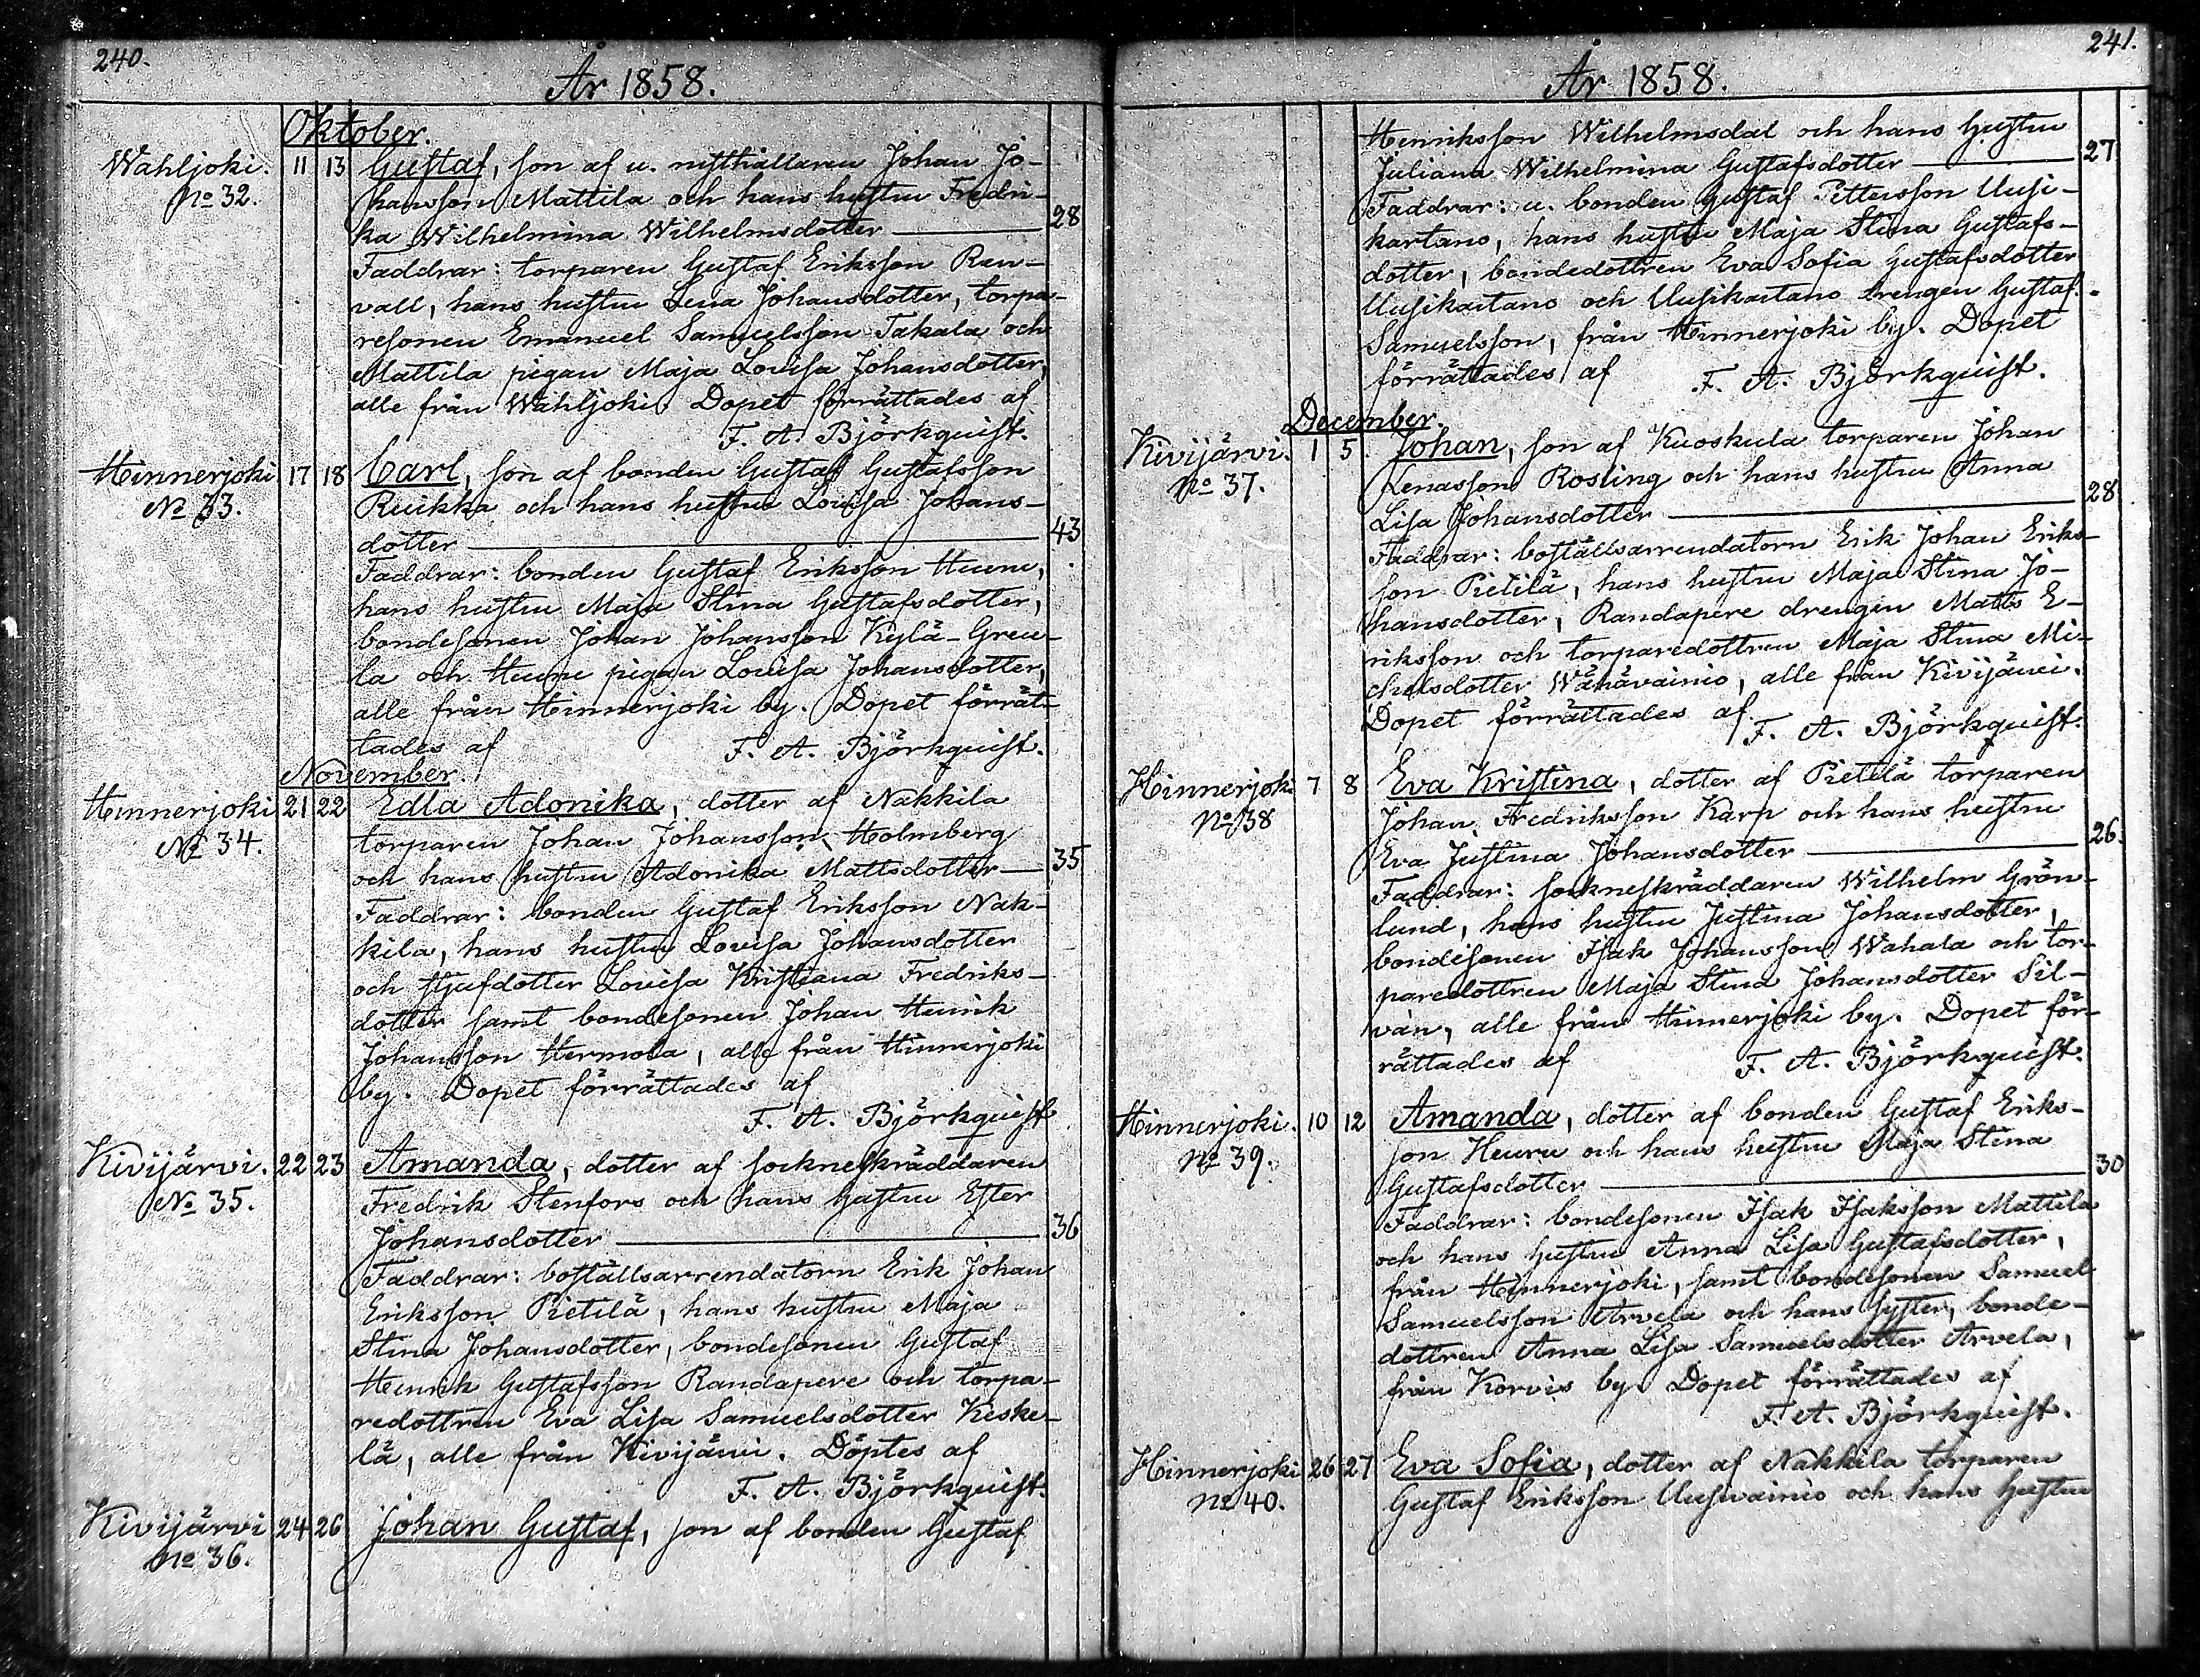 240.
År 1858.
Oktober.
Wahljoki. 11 13 Gustaf, son af u. rusthållaren Johan Jo-
No 32. hansson Mattila och hans hustru Fredri-
ka Wilhelmina Wilhelmsdotter — 28
Faddrar: torparen Gustaf Eriksson Ran-
vall, hans hustru Lena Johansdotter, torpa-
resonen Emanuel Samuelsson Takala och
Mattila pigan Maja Lovisa Johansdotter,
alle från Wahljoki. Dopet förrättades af
F. A. Björkquist.
Hinnerjoki 17 18 Carl, son af bonden Gustaf Gustafsson
No 33. Ruikka och hans hustru Lovisa Johans-
dotter — 43
Faddrar: bonden Gustaf Eriksson Heuru,
hans hustru Maja Stina Gustafsdotter,
bondesonen Johan Johansson Kylä-Greu-
la och Heuru pigan Lovisa Johansdotter,
alle från Hinnerjoki by. Dopet förrät-
tades af F. A. Björkquist.
November.
Hinnerjoki 21 22 Edla Adonika, dotter af Nakkila
No 34. torparen Johan Johansson Holmberg
och hans hustru Adonika Mattsdotter — 35
Faddrar: bonden Gustaf Eriksson Nak-
kila, hans hustru Lovisa Johansdotter
och stjufdotter Lovisa Kristiana Fredriks-
dotter samt bondesonen Johan Henrik
Johansson Hermola, alle från Hinnerjoki
by. Dopet förrättades af
F. A. Björkquist
Kivijärvi. 22 23 Amanda, dotter af sockneskräddaren
No 35. Fredrik Stenfors och hans hustru Ester
Johansdotter — 36
Faddrar: boställsarrendatorn Erik Johan
Eriksson Pietilä, hans hustru Maja
Stina Johansdotter, bondesonen Gustaf
Henrik Gustafsson Randapere och torpa-
redottren Eva Lisa Samuelsdotter Keske-
lä, alle från Kivijärvi. Döptes af
F. A. Björkquist.
Kivijärvi 24 26 Johan Gustaf, son af bonden Gustaf
No 36.
241.
År 1858.
Henriksson Wilhelmsdal och hans hustru
Juliana Wilhelmina Gustafsdotter — 27
Faddrar: u. bonden Gustaf Pettersson Uusi-
kartano, hans hustru Maja Stina Gustafs-
dotter, bondedottren Eva Sofia Gustafsdotter
Uusikartano och Uusikartano drengen Gustaf
Samuelsson, från Hinnerjoki by. Dopet
förrättades af F. A. Björkquist.
December.
Kivijärvi. 1 5. Johan, son af Kuoskula torparen Johan
No 37. Lenasson Rosling och hans hustru Anna
Lisa Johansdotter — 28
Faddrar: boställsarrendatorn Erik Johan Eriks-
son Pietilä, hans hustru Maja Stina Jo-
hansdotter, Randapere drengen Matts E-
riksson och torparedottren Maja Stina Mi-
chelsdotter Wähävainio, alle från Kivijärvi.
Dopet förrättades af F. A. Björkquist.
Hinnerjoki 7 8 Eva Kristina, dotter af Pietilä torparen
No 38 Johan Fredriksson Karp och hans hustru
Eva Justina Johansdotter — 26.
Faddrar: sockneskräddaren Wilhelm Grön-
lund, hans hustru Justina Johansdotter,
bondesonen Isak Johansson Wahala och tor-
paredottren Maja Stina Johansdotter Sil-
ván, alle från Hinnerjoki by. Dopet för-
rättades af F. A. Björkquist.
Hinnerjoki. 10 12 Amanda, dotter af bonden Gustaf Eriks-
No 39. son Heuru och hans hustru Maja Stina
Gustafsdotter — 30
Faddrar: bondesonen Isak Isaksson Mattila
och hans hustru Anna Lisa Gustafsdotter,
från Hinnerjoki, samt bondesonen Samuel
Samuelsson Arvela och hans syster, bonde-
dottren Anna Lisa Samuelsdotter Arvela,
från Korvis by. Dopet förrättades af
F. A. Björkquist.
Hinnerjoki 26 27 Eva Sofia, dotter af Nakkila torparen
No 40. Gustaf Eriksson Uusivainio och hans hustru